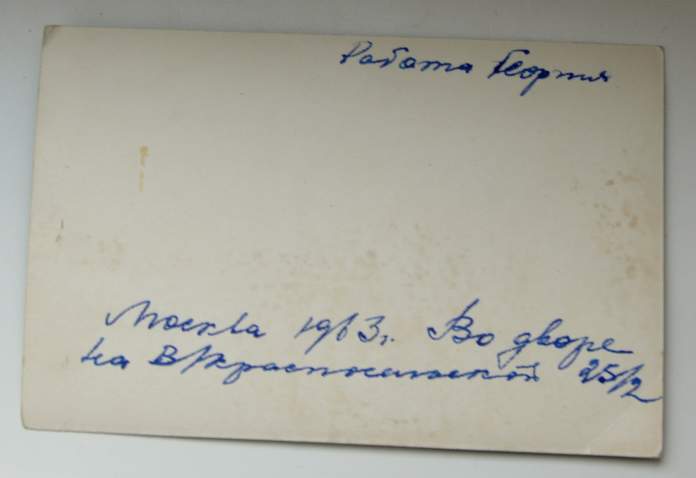 Работа Георгия
Москва 1963г. Во дворе
на В/красносельской 25/2